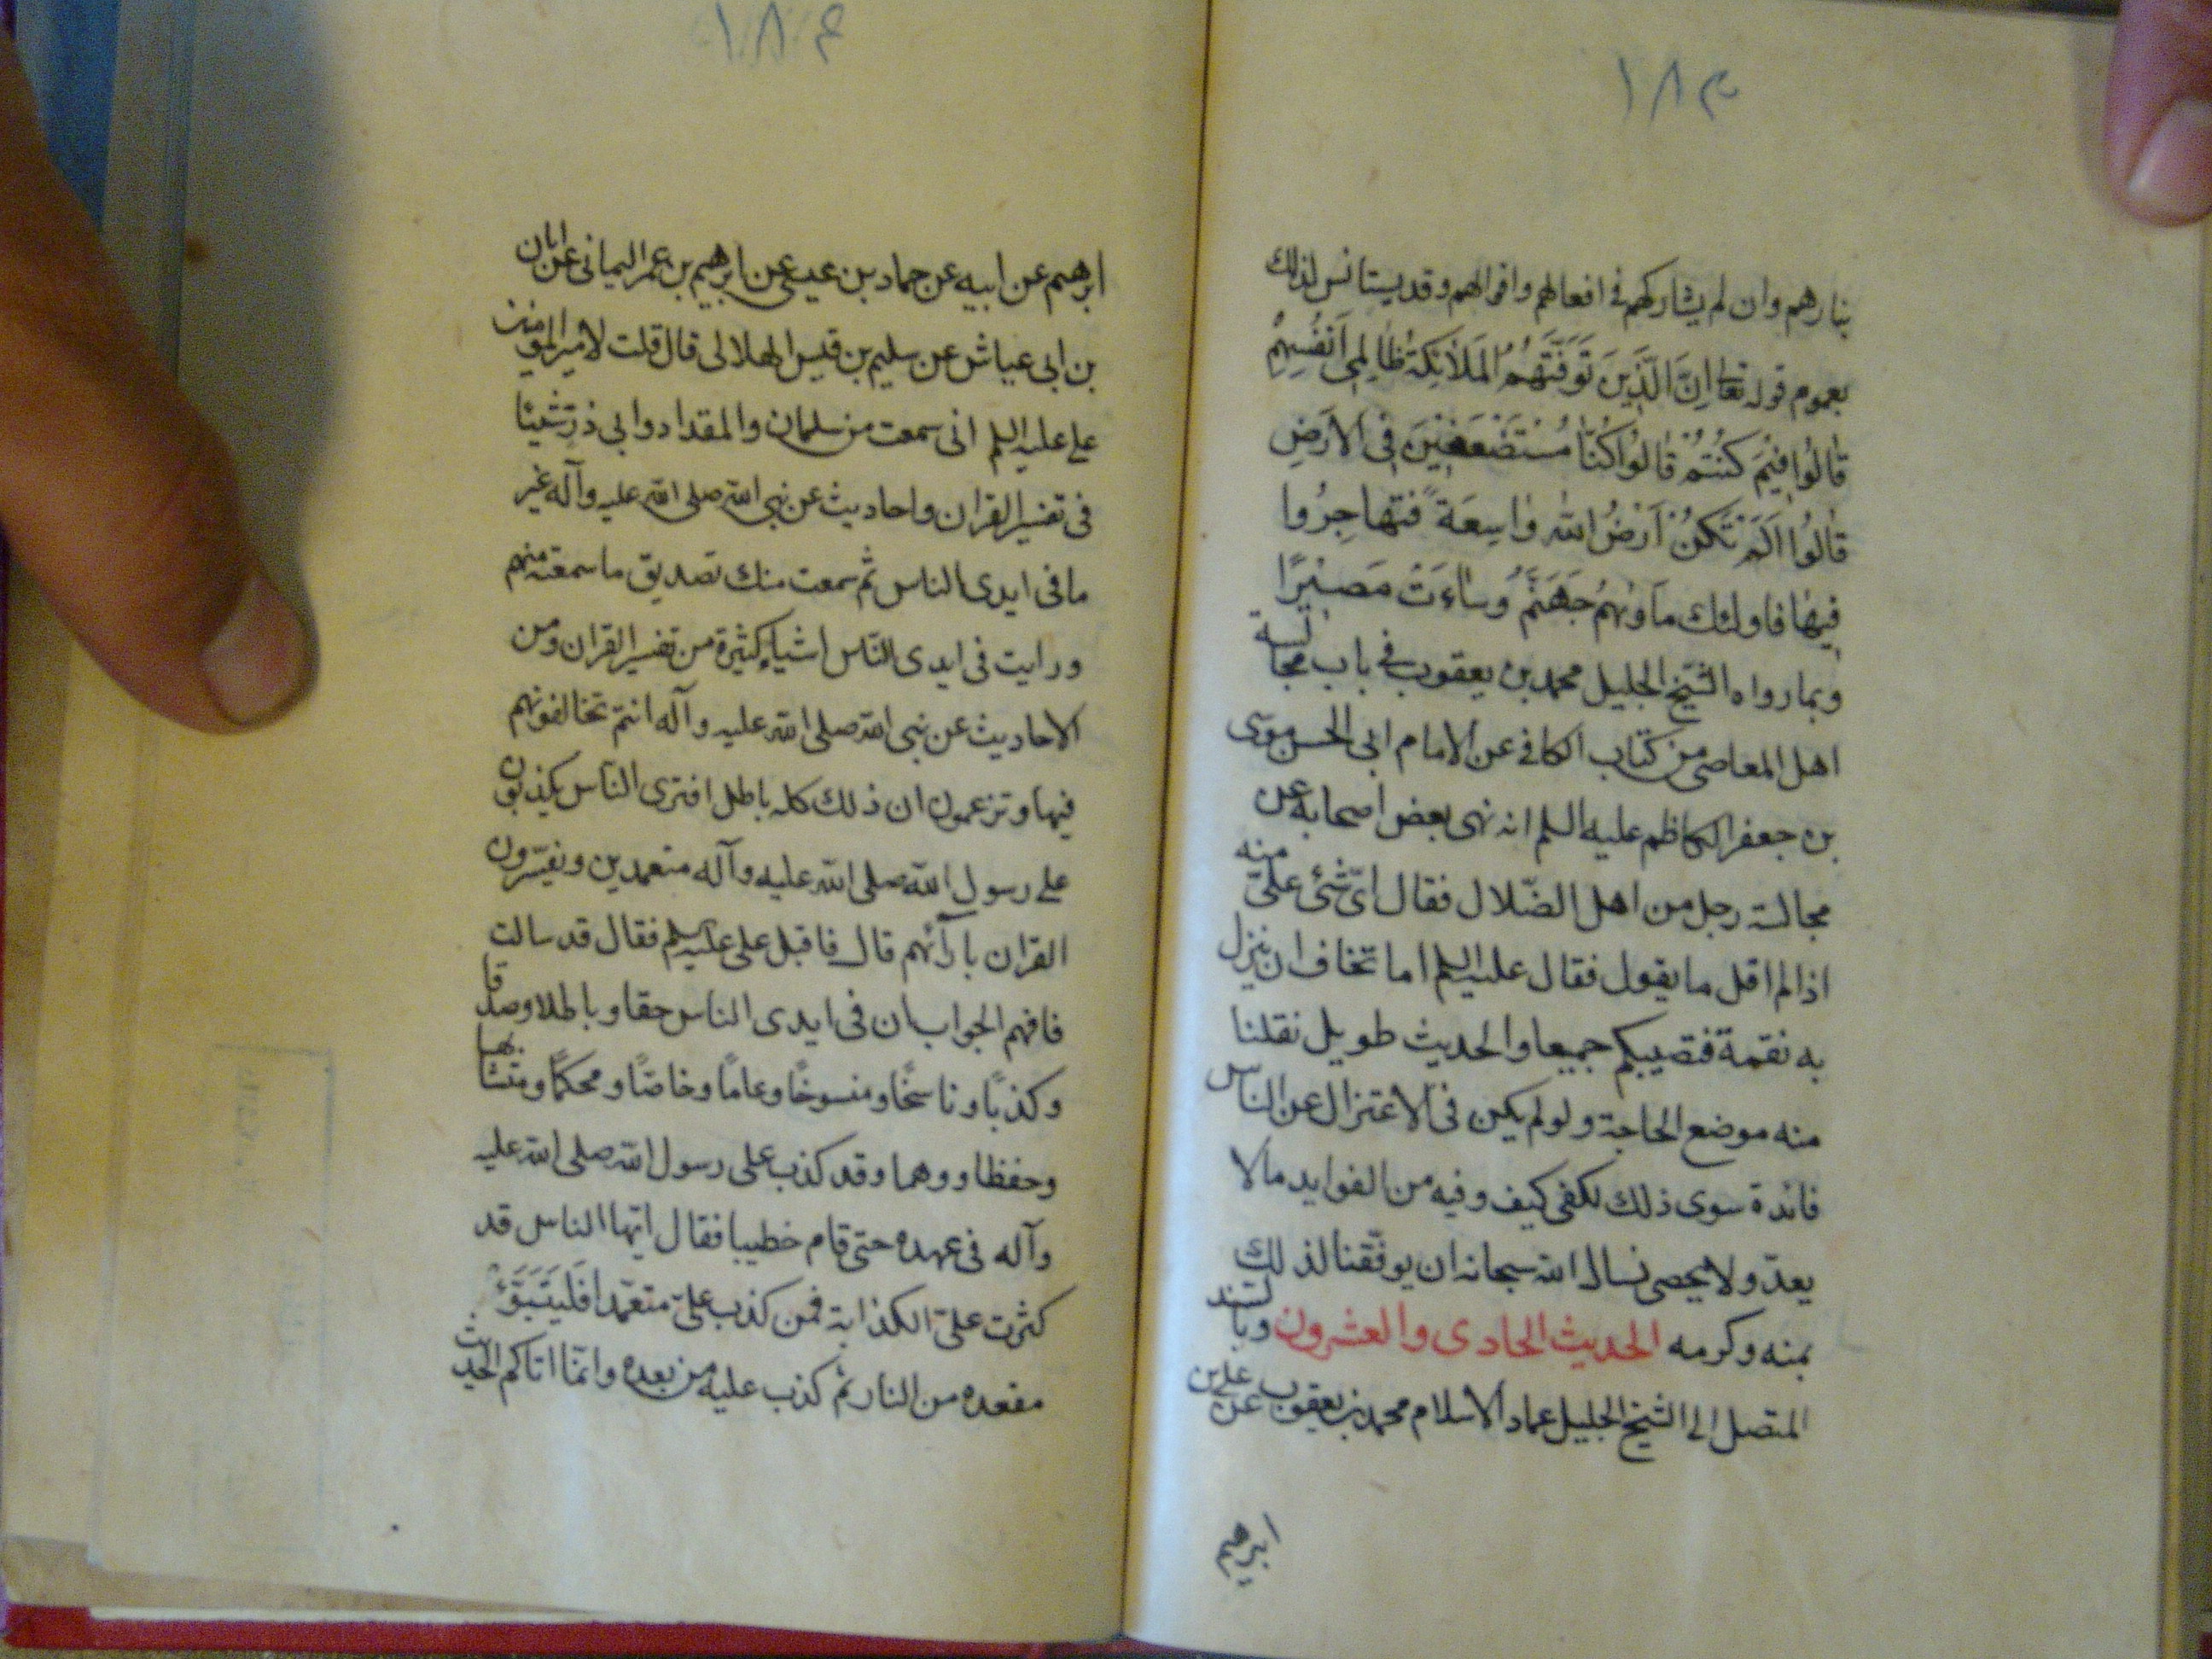 ١٨٣
بنارهم وان لم يشاركهم فى افعالهم واقوالهم وقد يستانس لذلك
بعموم قوله تعالى اِنَّ الَّذِينَ تَوَفَّتْهُمُ المَلائِكَةُ ظالِمِى اَنْفُسِهِمْ
قالُوا فِيمَ كُنْتُمْ قالُوا كُنّا مُسْتَضْعَفِينَ فِى الارَضِ
قالُوا اَلَمْ تَكُنْ اَرْضُ الله واسِعَةً فَتُهاجِرُوا
فِيها فاولئك مَاوٰيهُمْ جَهَنَّمُ وَساءَتْ مَصِيْرًا
وبما رواه الشيخ الجليل محمد بن يعقوب فى باب مجالسة
اهل المعاصى من كتاب الكافى عن الامام ابى الحسن موسى
بن جعفر الكاظم عليه السلم انه نهى بعض اصحابه عن
مجالسة رجل من اهل الضّلال فقال اىّ شئ علىّ منه
اذا لم اقل ما يقول فقال عليه السلم اما تخاف ان ينزل
به نقمة فتصيبكم جميعا والحديث طويل نقلنا
منه موضع الحاجة ولو لم يكن فى الاعتزال عن الناس
فائدة سوى ذلك لكفى كيف وفيه من الفوايد ما لا
يعدّ ولا يحصى نسال الله سبحانه ان يوفّقنا لذلك
بمنه وكرمه الحديث الحادى والعشرون وبالسند
المتصل الى الشيخ الجليل عماد الاسلام محمد بن يعقوب عن على بن
ابرهيم
١٨٤
ابرهيم عن ابيه عن حماد بن عيسى عن ابرهيم بن عمر اليمانى عن ابان
بن ابى عياش عن سليم بن قيس الهلالى قال قلت لامير المومنين
على عليه السلم انى سمعت من سلمان والمقداد وابى ذر شيئا
فى تفسير القران واحاديث عن نبى الله صلى الله عليه وآله غير
ما فى ايدى الناس ثم سمعت منك تصديق ما سمعته منهم
ورايت فى ايدى الناس اشياء كثيرة من تفسير القران ومن
الاحاديث عن نبى الله صلى الله عليه وآله انتم تخالفونهم
فيها وتزعمون ان ذلك كله باطل افترى الناس يكذبون
على رسول الله صلى الله عليه وآله متعمدين ويفسّرون
القران بارآئهم قال فاقبل على عليه السلم فقال قد سالت
فافهم الجواب ان فى ايدى الناس حقا وباطلا وصدقا
وكذبًا وناسخًا ومنسوخًا وعامًا وخاصًا ومحكمًا ومتشابها
وحفظا ووهما وقد كذب على رسول الله صلى الله عليه
وآله فى عهده حتى قام خطيبا فقال ايها الناس قد
كثرت علىّ الكذابة فمن كذب علىّ متعمّدا فَليتَبَوَّءْ
مقعده من النار ثم كذب عليه من بعده وانما اتاكم الحديث